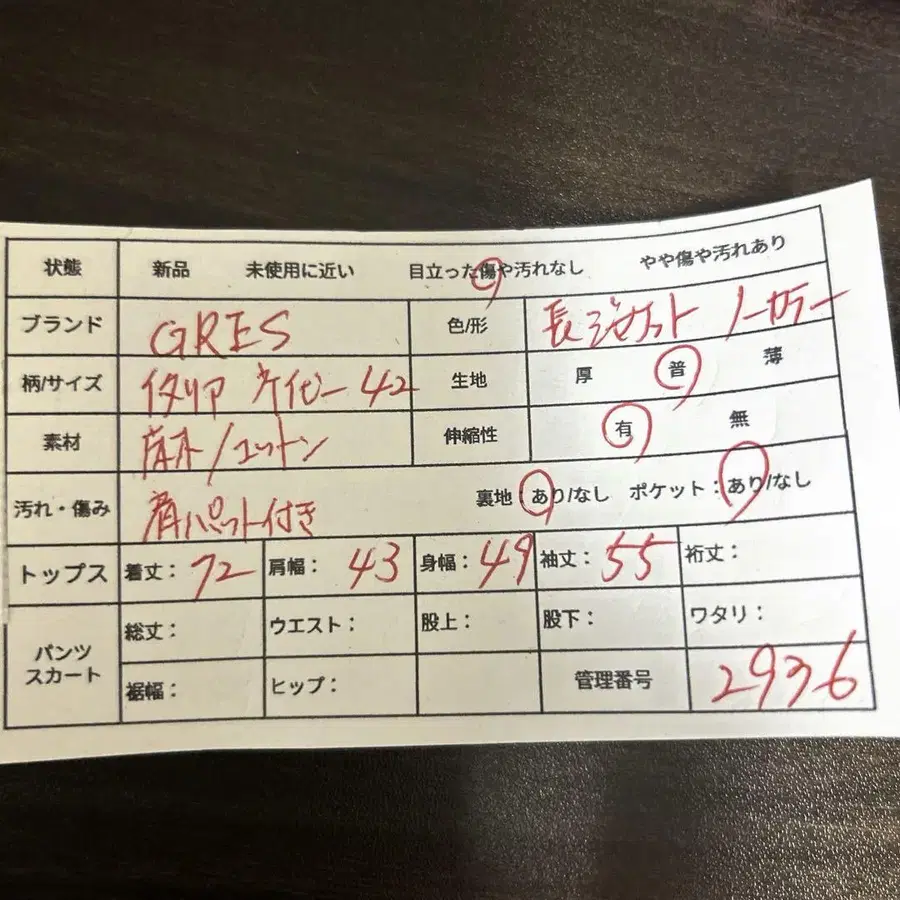 状態 新品 未使用に近い 目立った傷や汚れなし やや傷や汚れあり
ブランド GRES 色/形 長ジャケット ノーカラー
柄/サイズ イタリア ネイビー 42 生地 厚 普 薄
素材 麻/コットン 伸縮性 有 無
汚れ・傷み 肩パット付き 裏地:あり/なし ポケット:あり/なし
トップス 着丈: 72 肩幅: 43 身幅: 49 袖丈: 55 裄丈:
パンツ スカート 総丈: ウエスト: 股上: 股下: ワタリ:
裾幅: ヒップ: 管理番号 2936